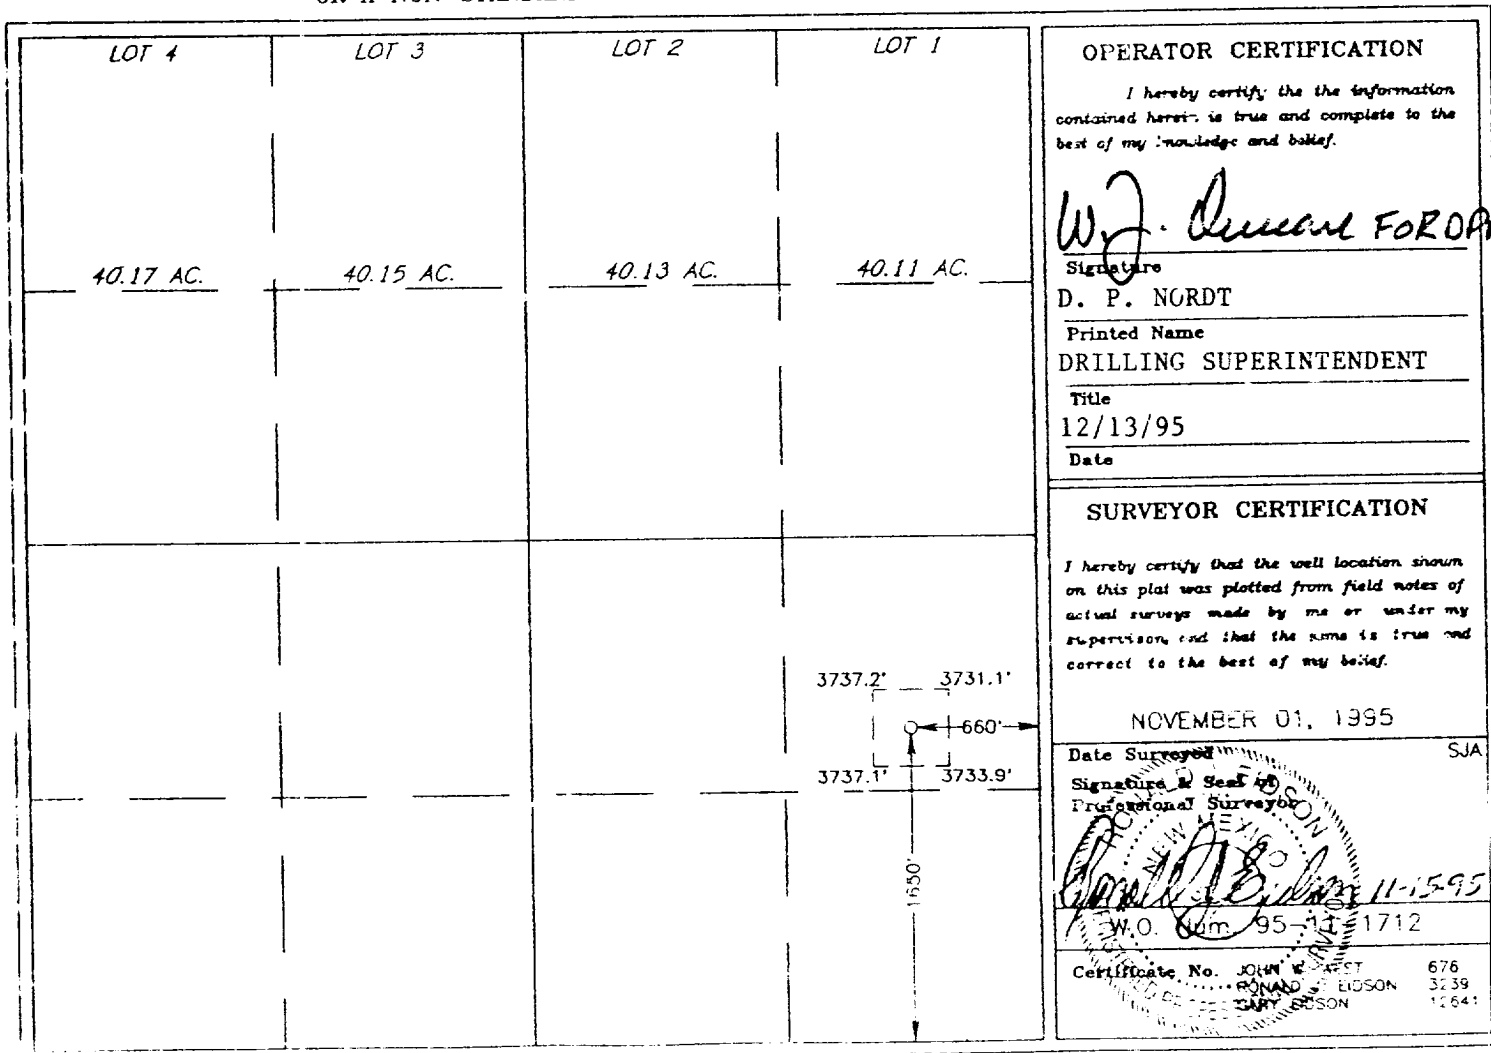 LOT 4 LOT 3 LOT 2 LOT 1
40.17 AC. 40.15 AC. 40.13 AC. 40.11 AC.
3737.2' 3731.1'
660'
3737.1' 3733.9'
1650'
OPERATOR CERTIFICATION
I hereby certify the the information
contained herein is true and complete to the
best of my knowledge and belief.
W.J. Duncan FOR DPN
Signature
D. P. NORDT
Printed Name
DRILLING SUPERINTENDENT
Title
12/13/95
Date
SURVEYOR CERTIFICATION
I hereby certify that the well location shown
on this plat was plotted from field notes of
actual surveys made by me or under my
supervison, and that the same is true and
correct to the best of my belief.
NOVEMBER 01, 1995
Date Surveyed SJA
Signature & Seal of
Professional Surveyor
NEW MEXICO
Ronald J Eidson 11-15-95
W.O. Num. 95-11-1712
Certificate No. JOHN W WEST 676
RONALD J EIDSON 3239
GARY EIDSON 12641